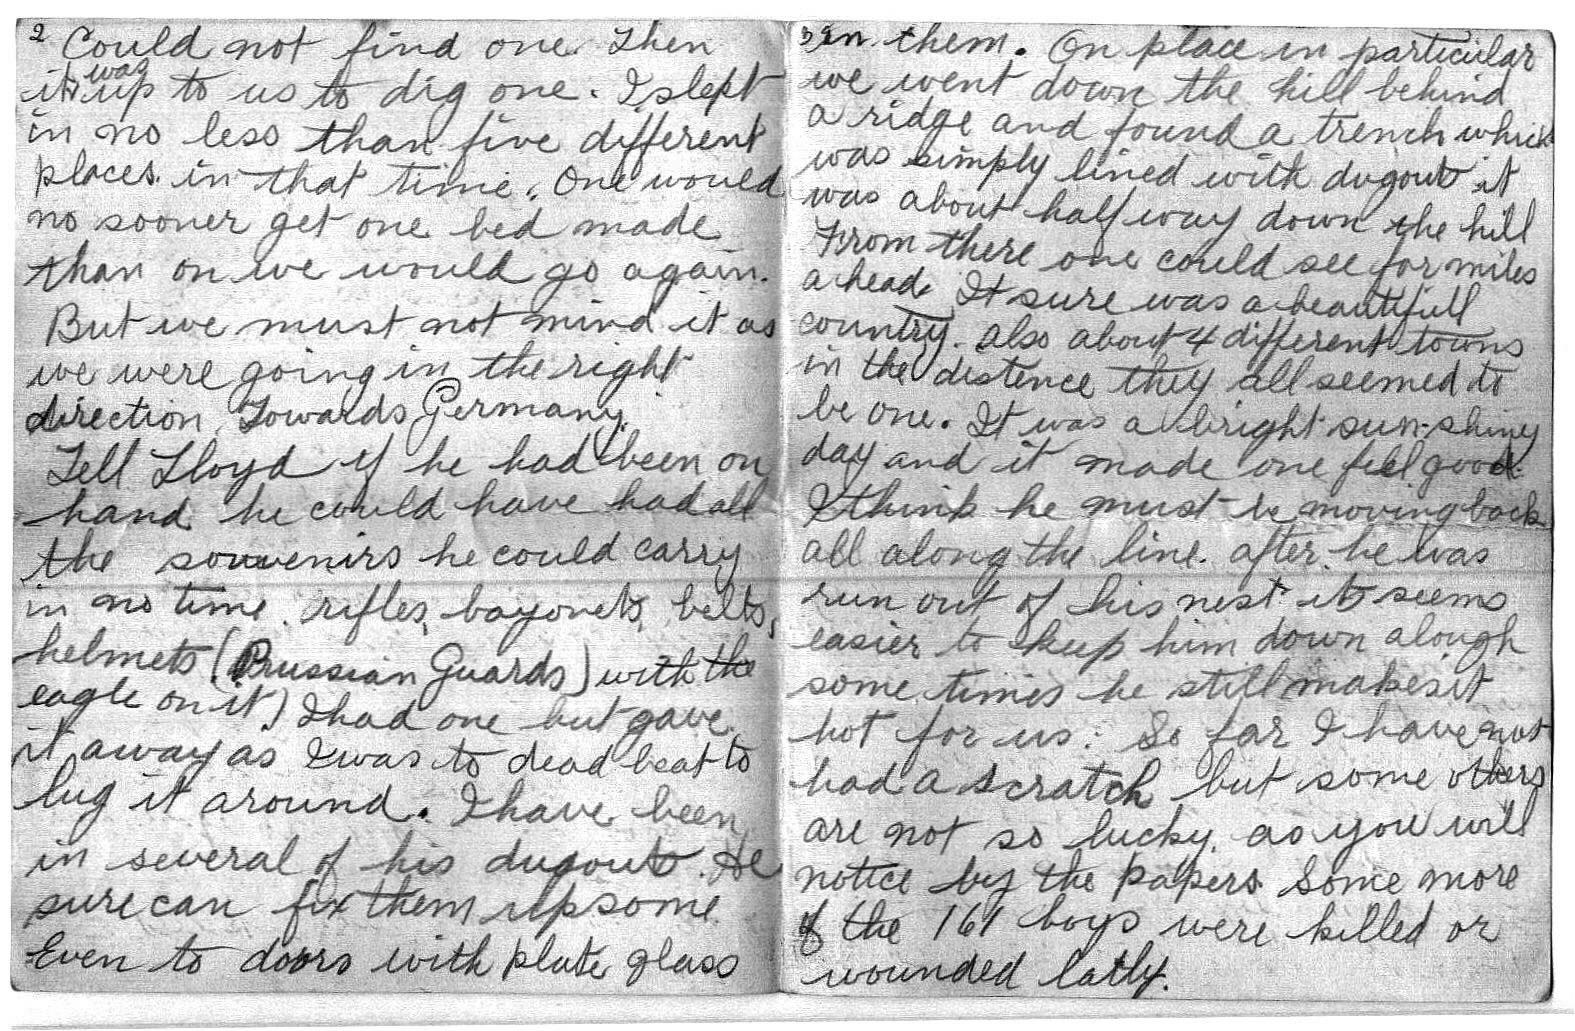 2 Could not find one. Then
it was up to us to dig one. I slept
in no less than five different
places in that time. One would
no sooner get one bed made
than on we would go again.
But we must not mind it as
we were going in the right
direction, Towards Germany.
Tell Lloyd if he had been on
hand he could have had all
the souvenirs he could carry
in no time. rifles, bayonets, belts,
helmets (Prussian Guards) with the
eagle on it) I had one but gave
it away as I was to dead beat to
lug it around. I have been
in several of his dugouts. He
sure can fix them up some.
Even to doors with plate glass
3 in them. On place in particular
we went down the hill behind
a ridge and found a trench which
was simply lined with dugouts it
was about half way down the hill
From there one could see for miles
ahead. It sure was a beautifull
country. also about 4 different towns
in the distence they all seemed to
be one. It was a bright sun-shiny
day and it made one feel good.
I think he must be moving back
all along the line. after he was
run out of his nest it seems
easier to keep him down alough
some times he still makes it
hot for us. So far I have not
had a scratch but some others
are not so lucky. as you will
notice by the papers. Some more
of the 161 boys were killed or
wounded latly.